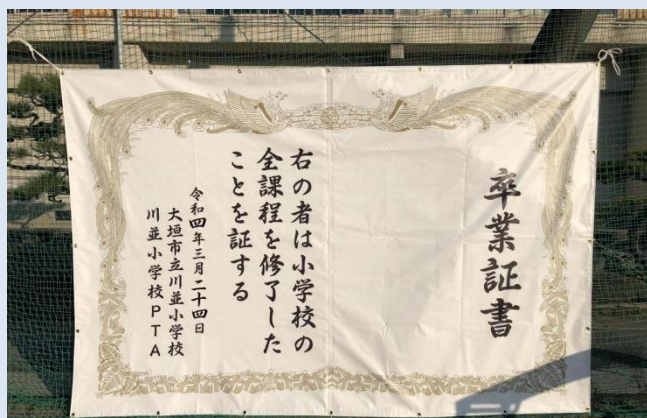 卒業証書
右の者は小学校の
全課程を修了した
ことを証する
令和四年三月二十四日
大垣市立川並小学校
川並小学校PTA